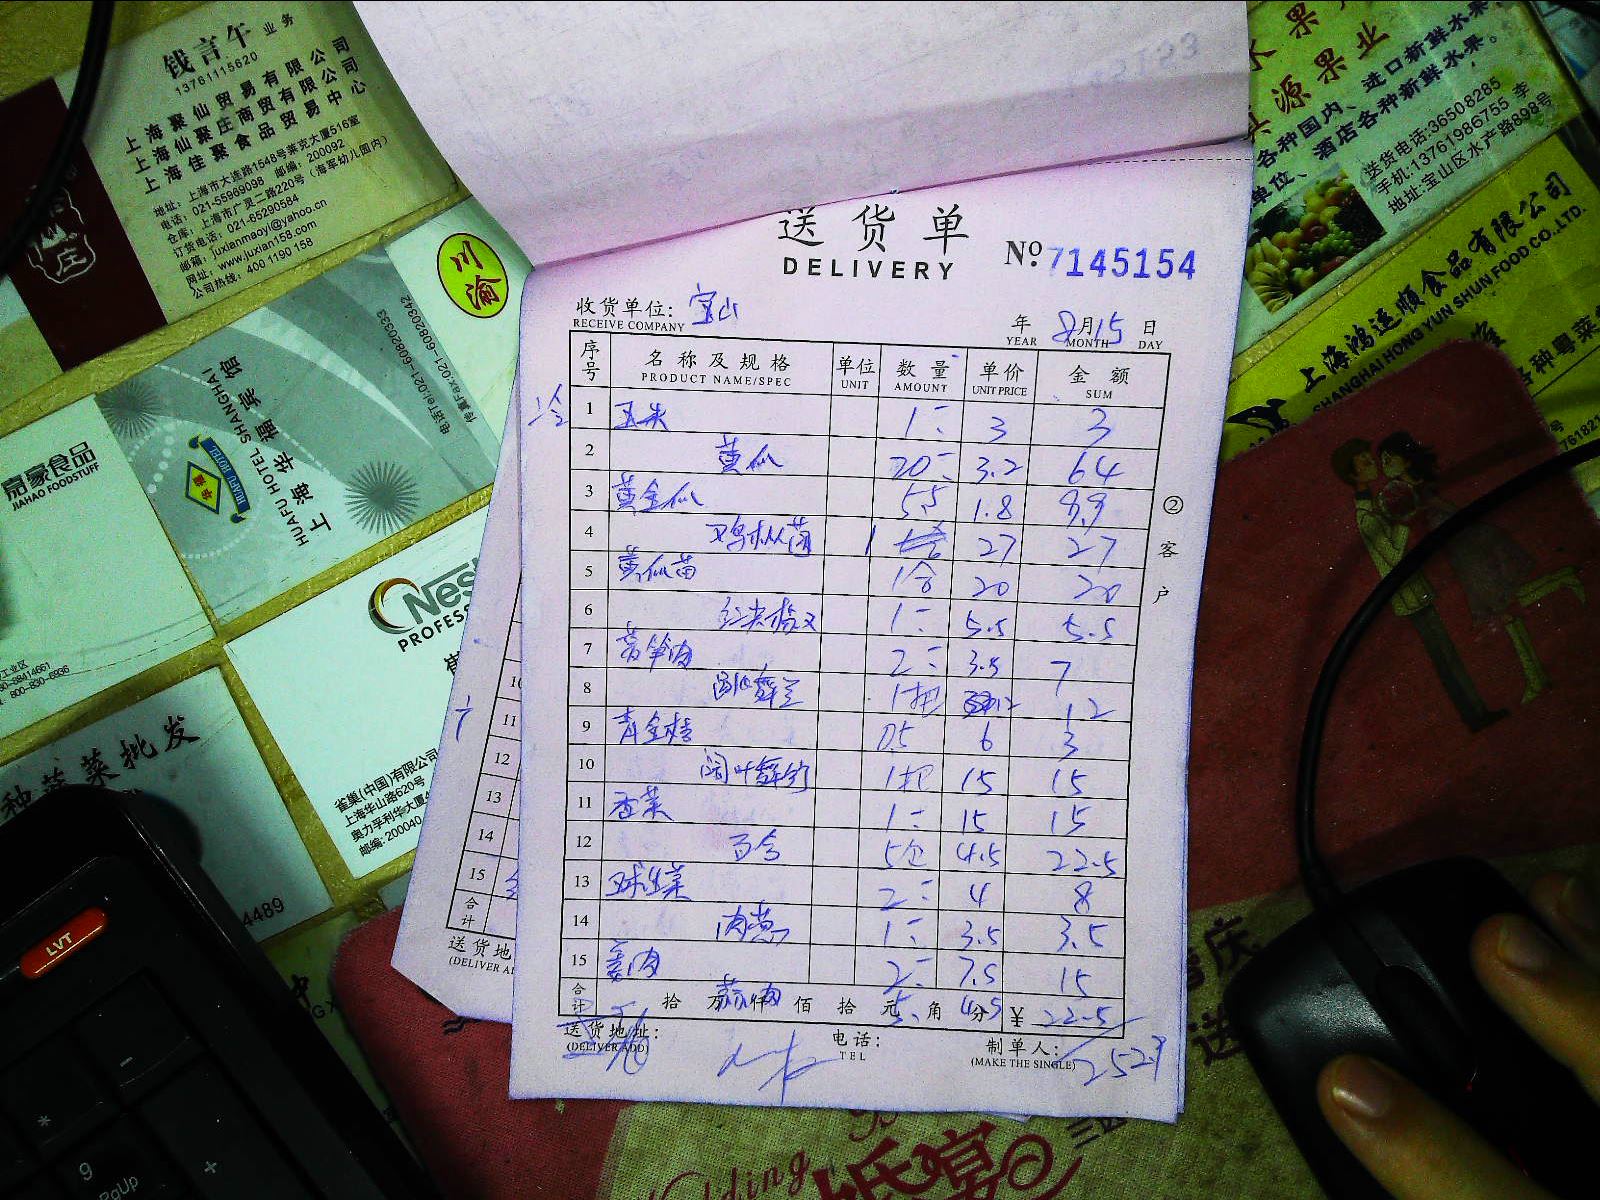 钱言午 业务
13761115620
上海聚仙贸易有限公司
上海仙聚庄商贸有限公司
上海佳聚食品贸易中心
地址: 上海市大连路1548号莱克大厦516室
电话: 021-55969098 邮编: 200092
仓库: 上海市广灵二路220号 (海军幼儿园内)
订货电话: 021-65290584
邮箱: juxianmaoyi@yahoo.cn
网址: www.juxian158.com
公司热线: 400 1190 158
庄
川渝
电话Tel:021-60820333
传真Fax:021-60820342
上海华福宾馆
HUAFU HOTEL SHANGHAI
嘉豪食品
JIAHAO FOODSTUFF
工业区
800-830-6936
PROFESS
雀巢(中国)有限公司
上海华山路620号
奥力孚利华大厦
邮编: 200040
种蔬菜批发
4489
源果业
各种国内、进口新鲜水果,
单位、酒店各种新鲜水果。
送货电话:36508285
手机:13761986755 李
地址:宝山区水产路898号
上海鸿运顺食品有限公司
SHANGHAI HONG YUN SHUN FOOD CO.,LTD.
各种粤菜
送货单
DELIVERY
No. 7145154
收货单位: 宝山
RECEIVE COMPANY
年 8月15日
YEAR MONTH DAY
序号 名称及规格 单位 数量 单价 金额
PRODUCT NAME/SPEC UNIT AMOUNT UNIT PRICE SUM
1 3 3
2 黄瓜 20 3.2 64
3 黄金瓜 5.5 1.8 9.9
4 鸡枞菌 1 27 27
5 黄瓜苗 1合 20 20
6 1 5.5 5.5
7 2 3.5 7
8 1把 12 12
9 青金桔 05 6 3
10 1把 15 15
11 香菜 1 15 15
12 百合 5包 4.5 22.5
13 球生菜 2 4 8
14 1 3.5 3.5
15 2 7.5 15
合计 拾 万 仟 佰 拾 元 角 分 ¥ 22.5
5 4.5
送货地址:
(DELIVER ADD)
电话:
TEL
制单人:
(MAKE THE SINGLE)
252.9
② 客户
10
11
12
13
14
15
合计
送货地
(DELIVER A
LVT
9
PgUp